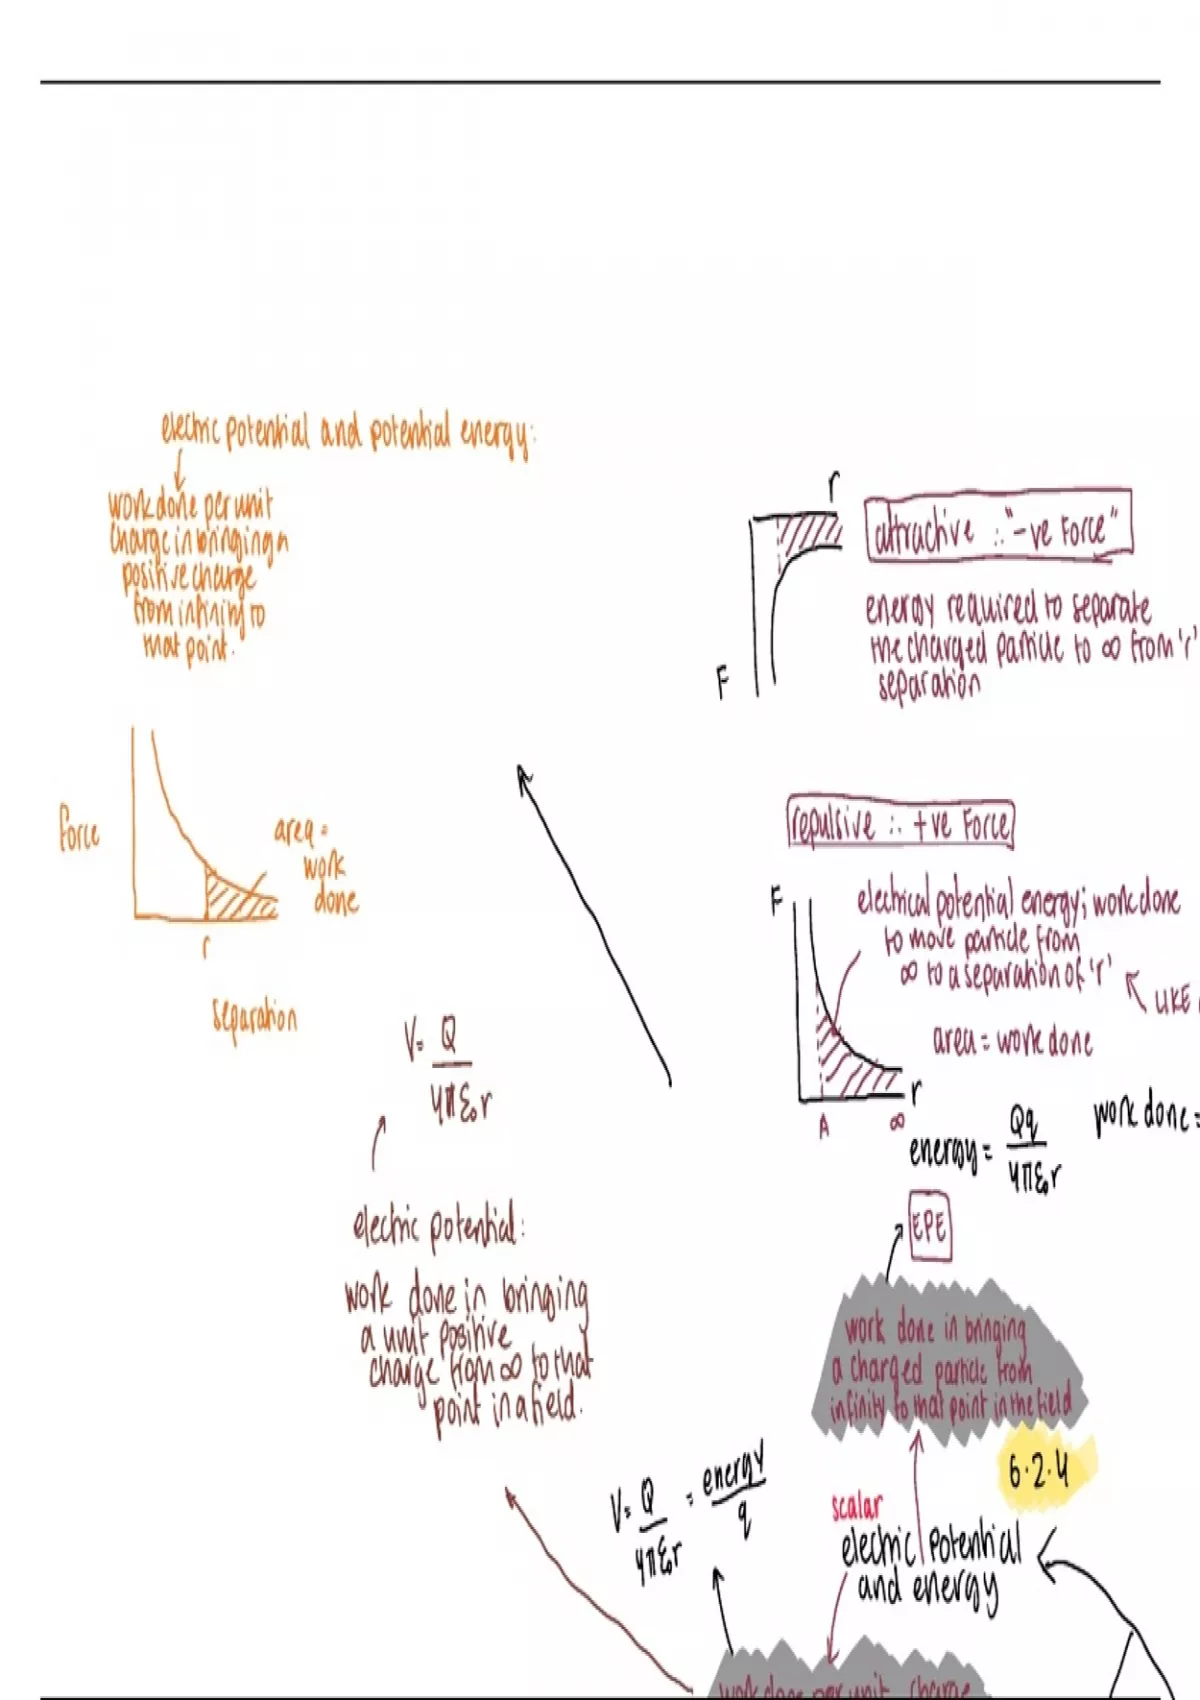 electric potential and potential energy:
work done per unit
charge in bringing a
positive charge
from infinity to
that point.
Force
area =
work
done
r
separation
V = Q
4πε₀r
electric potential:
work done in bringing
a unit positive
charge from ∞ to that
point in a field.
r
F
attractive ∴ "-ve Force"
energy required to separate
the charged particle to ∞ from 'r'
separation
repulsive ∴ +ve Force
F
electrical potential energy; work done
to move particle from
∞ to a separation of 'r'
LIKE
area = work done
r
A ∞
energy = Qq
4πε₀r
work done =
EPE
work done in bringing
a charged particle from
infinity to that point in the field
6.2.4
scalar
electric potential
and energy
V = Q = energy
4πε₀r q
work done per unit charge